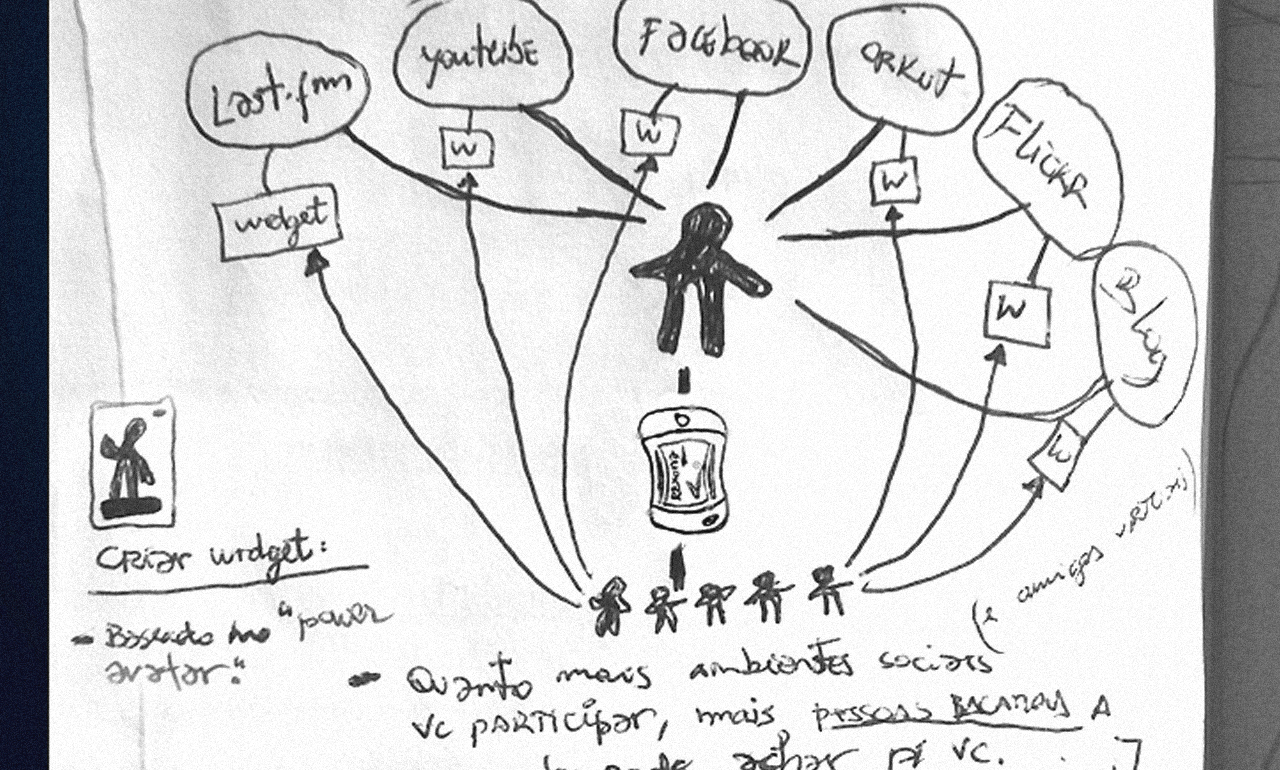 Last.fm
youtube
Facebook
ORKUT
Flickr
Blog
widget
W
W
W
W
W
Criar widget:
- Baseado no "power
avatar."
(e amigos virtuais)
- Quanto mais ambientes sociais
vc PARTICIPAr, mais pessoas BACANAS A
pode achar p/ vc. . . ]